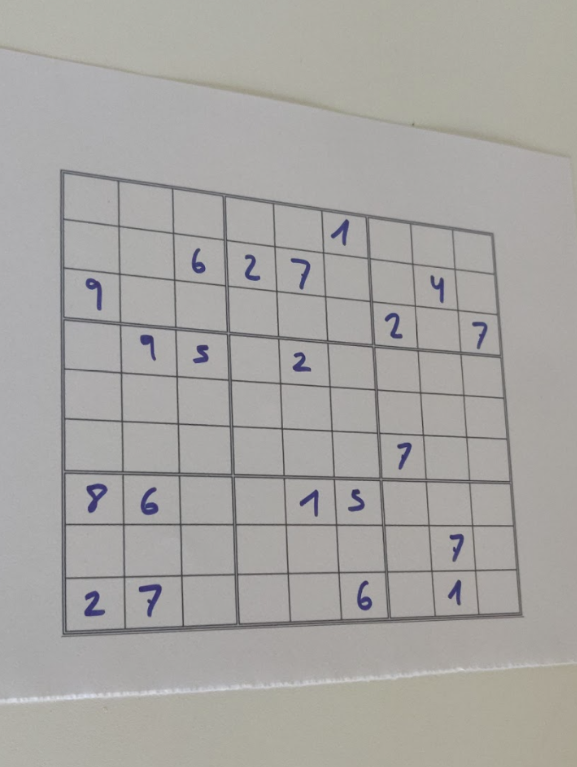 1
6 2 7 4
9 2 7
9 5 2
7
8 6 1 5
7
2 7 6 1